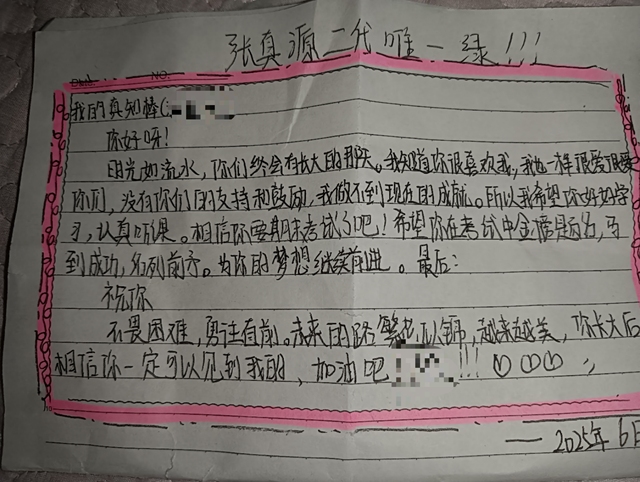 张真源二代唯一绿!!!
Date. NO.
我的真知棒(
你好呀!
时光如流水,你们终会有长大的那天。我知道你很喜欢我,我也一样很爱很爱
你们,没有你们的支持和鼓励,我做不到现在的成就。所以我希望你好好学
习,认真听课。相信你要期末考试了吧!希望你在考试中金榜题名,马
到成功,名列前矛。为你的梦想继续前进。最后:
祝你
不畏困难,勇往直前。未来的路繁花似锦,越来越美,你长大后
相信你一定可以见到我的,加油吧!!!
——2025年6日